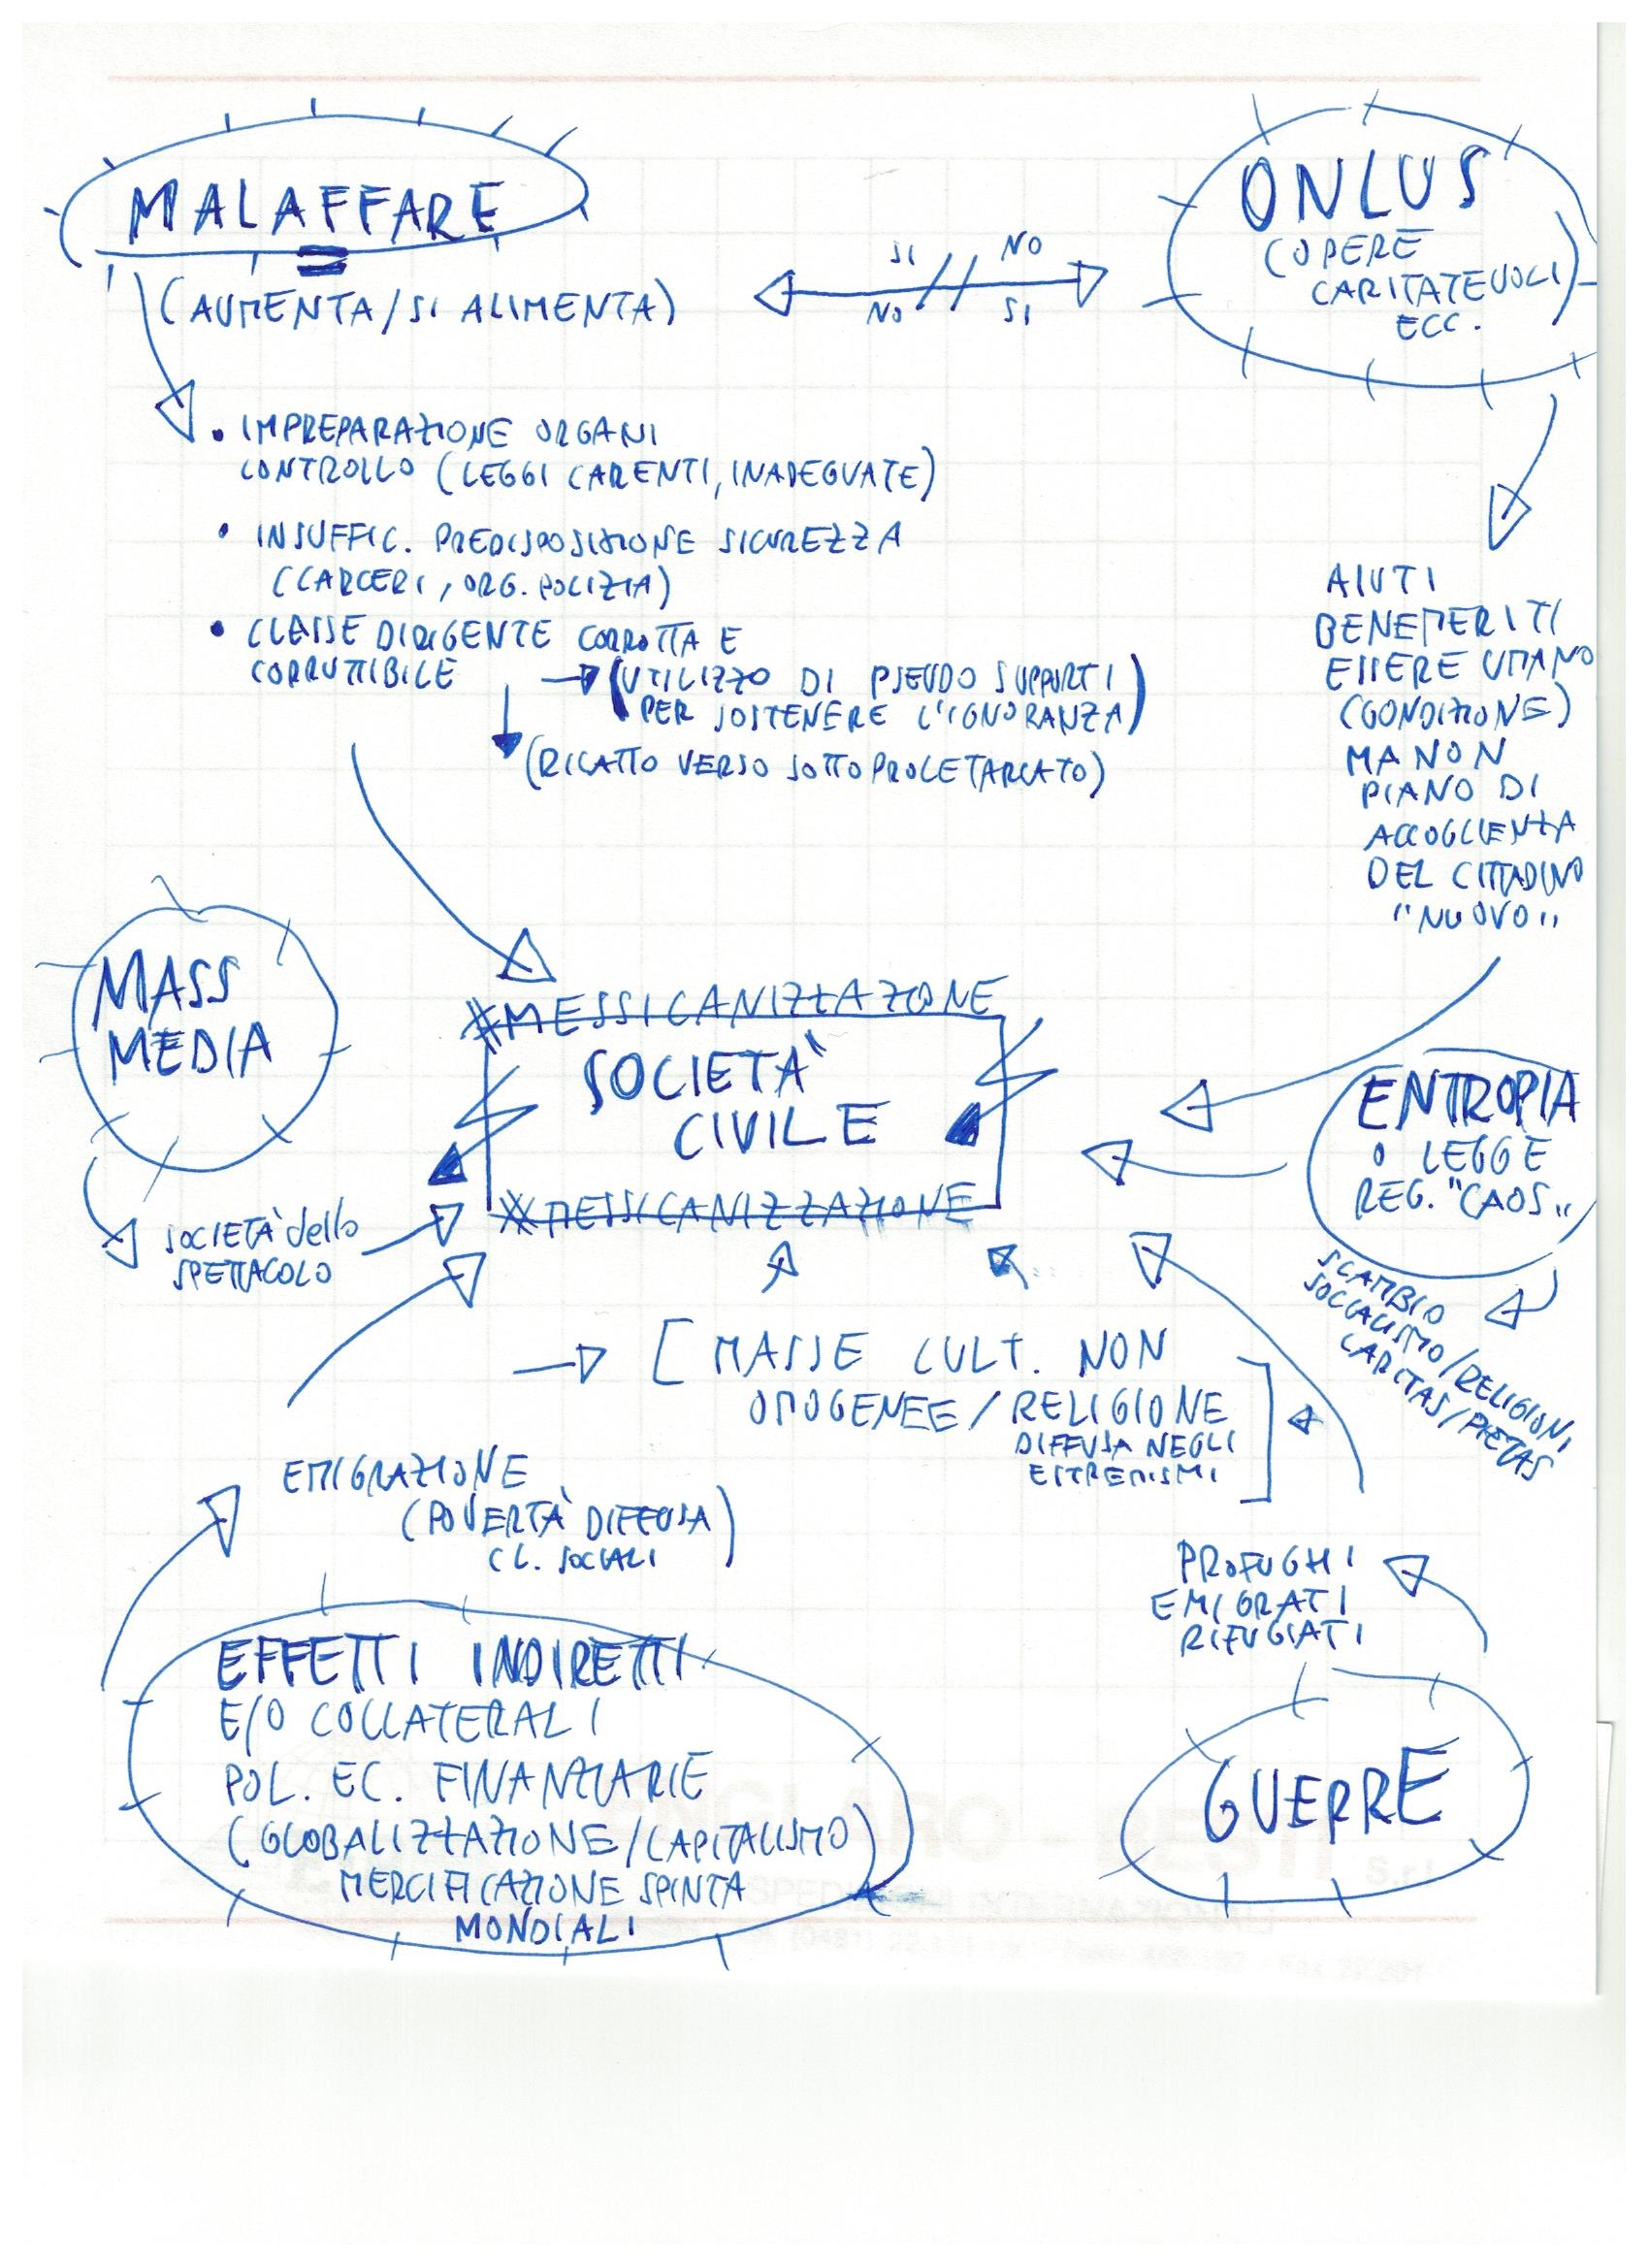 MALAFFARE
(AUMENTA/SI ALIMENTA)
SI // NO
NO SI
ONLUS
(OPERE
CARITATEVOLI
ECC.
• IMPREPARAZIONE ORGANI
CONTROLLO (LEGGI CARENTI, INADEGUATE)
• INSUFFIC. PREDISPOSIZIONE SICUREZZA
(CARCERI, ORG. POLIZIA)
• CLASSE DIRIGENTE CORROTTA E
CORRUTTIBILE
(UTILIZZO DI PSEUDO SUPPORTI
PER SOSTENERE L'IGNORANZA)
(RICATTO VERSO SOTTOPROLETARIATO)
AIUTI
BENEMERITI
ESSERE UMANO
(CONDIZIONE)
MA NON
PIANO DI
ACCOGLIENZA
DEL CITTADINO
"NUOVO"
MASS
MEDIA
SOCIETÀ dello
SPETTACOLO
MESSICANIZZAZIONE
SOCIETÀ
CIVILE
MESSICANIZZAZIONE
ENTROPIA
O LEGGE
REG. "CAOS"
SCAMBIO
SOCIALISMO/RELIGIONI
CARITAS/PIETAS
[MASSE CULT. NON
OMOGENEE/RELIGIONE
DIFFUSA NEGLI
ESTREMISMI]
EMIGRAZIONE
(POVERTÀ DIFFUSA
CL. SOCIALI)
PROFUGHI
EMIGRATI
RIFUGIATI
EFFETTI INDIRETTI
E/O COLLATERALI
POL. EC. FINANZIARIE
(GLOBALIZZAZIONE/CAPITALISMO)
MERCIFICAZIONE SPINTA
MONDIALI
GUERRE